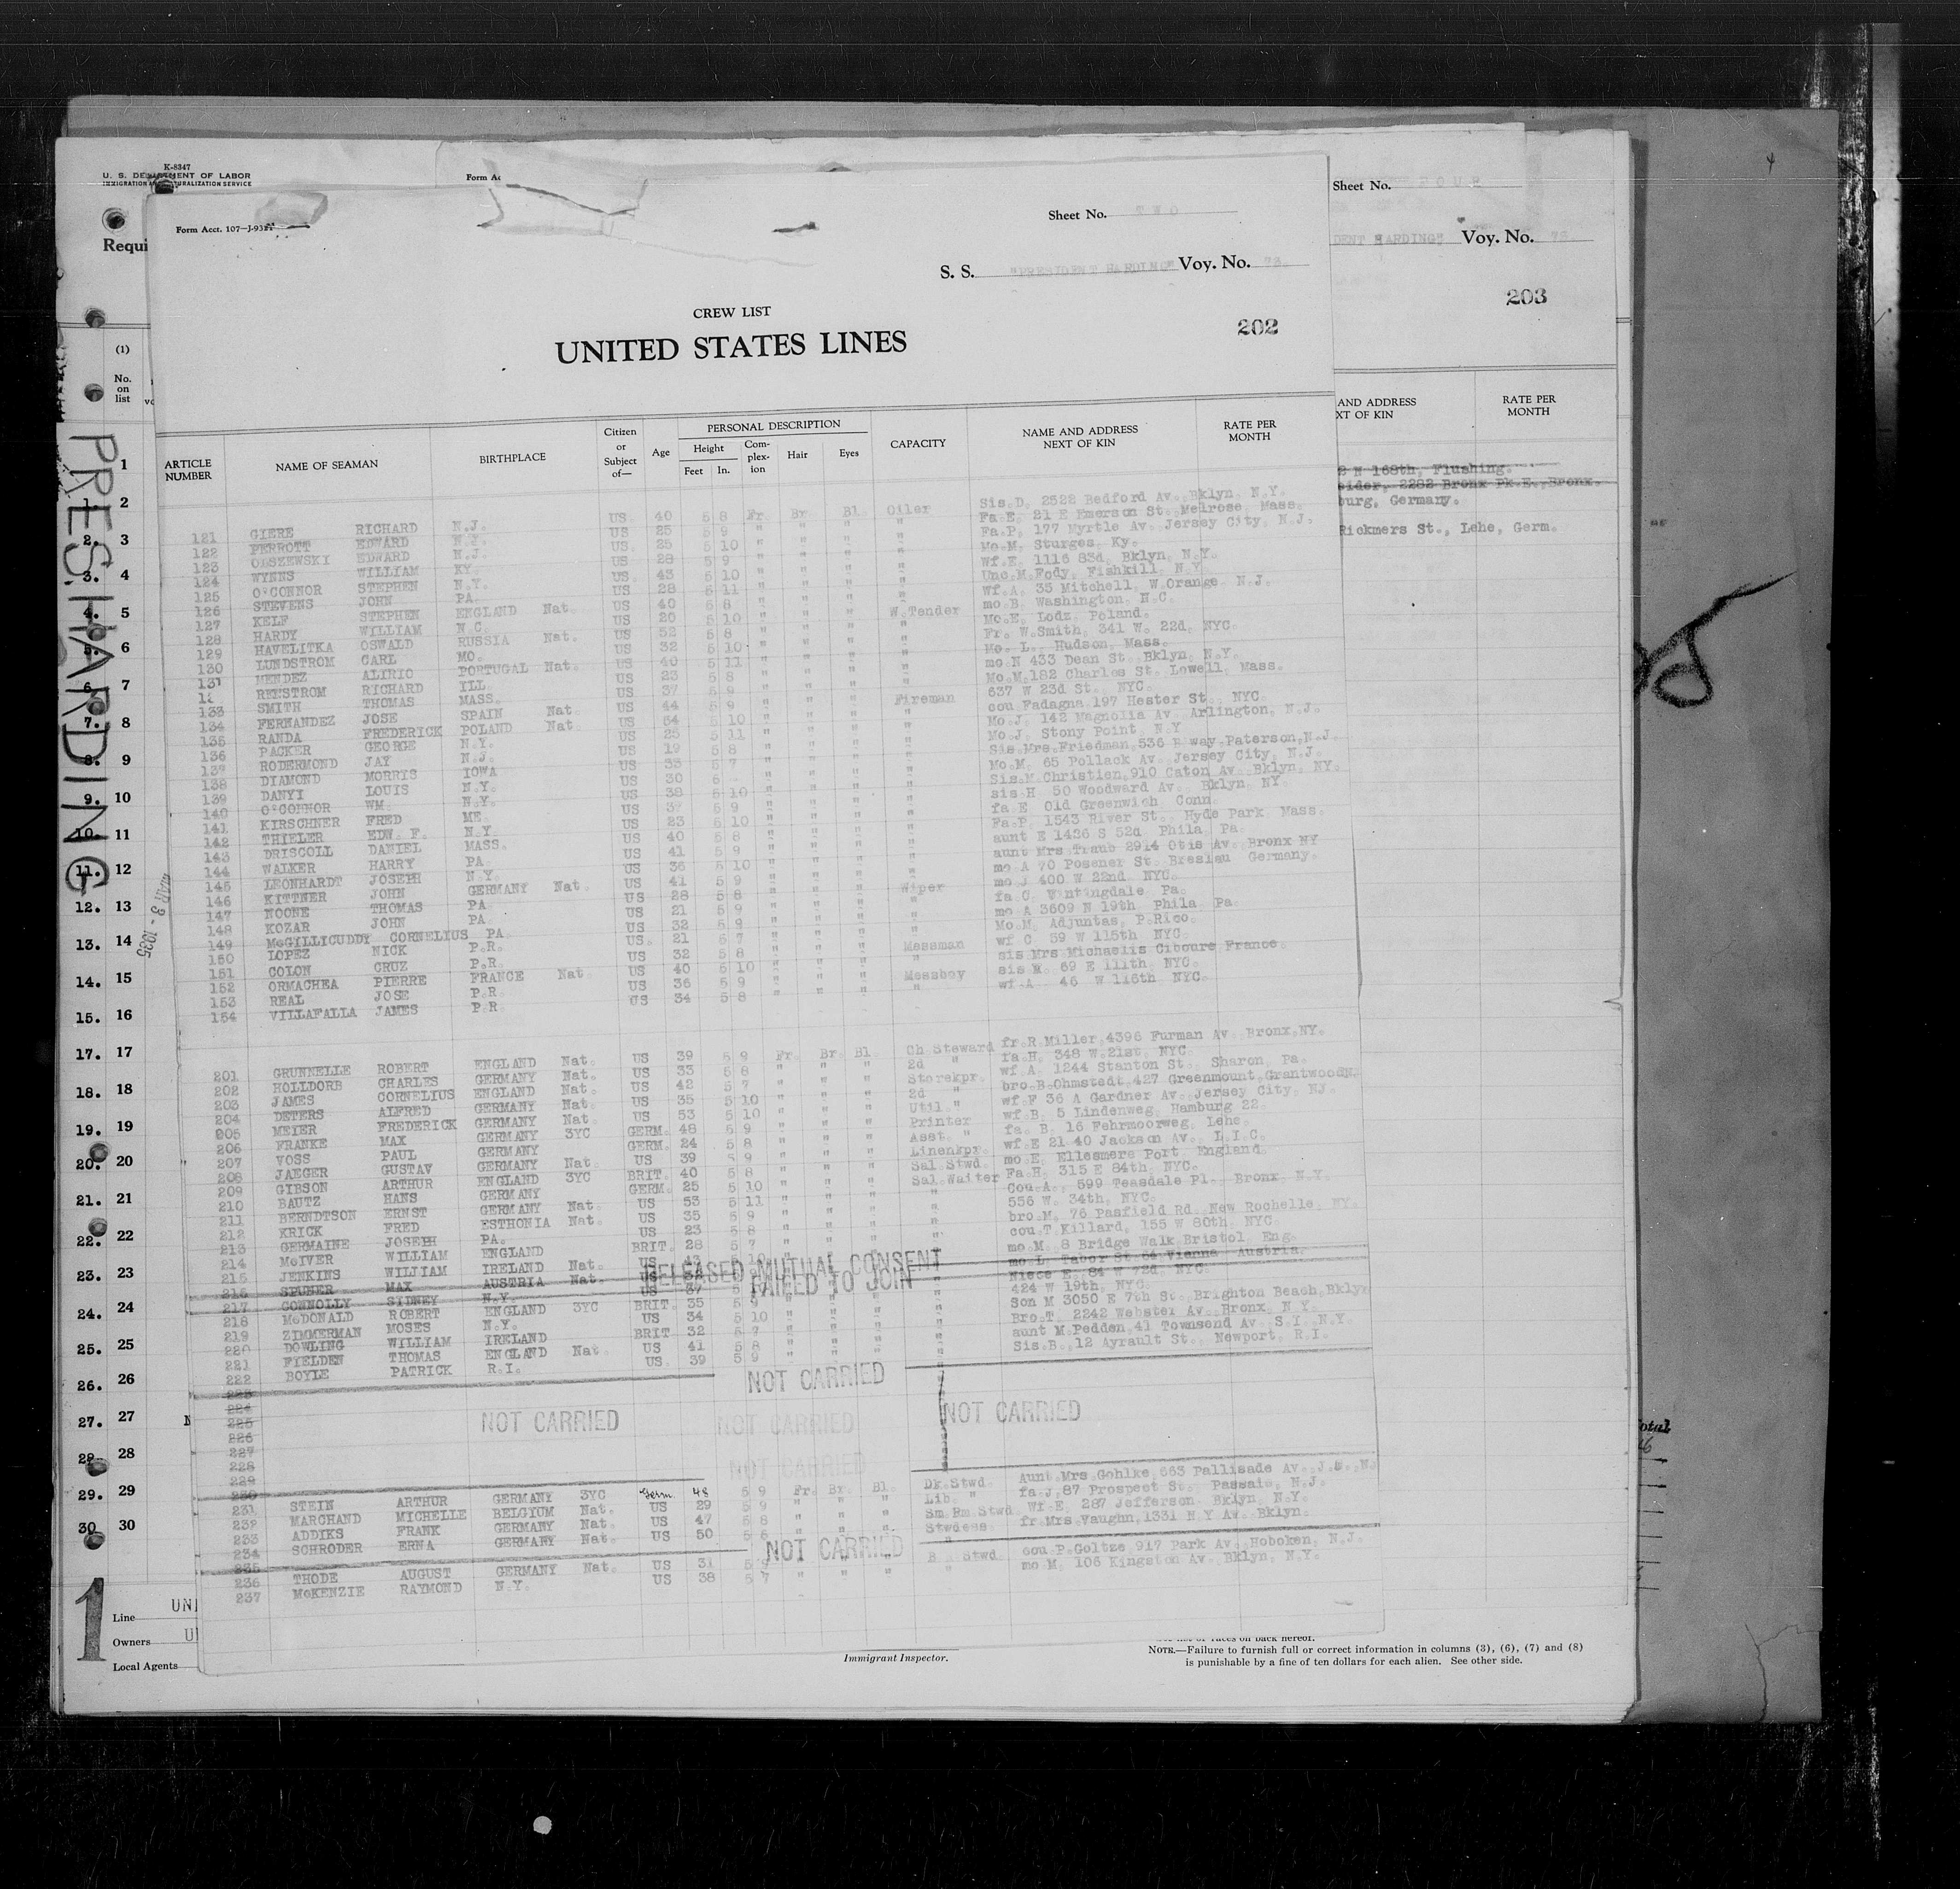 K-8347
U. S. DEPARTMENT OF LABOR
IMMIGRATION AND NATURALIZATION SERVICE
Requi
(1)
No. on list
PRES. HARDING
MAR 3 - 1935
Form Acct. 107—J-93
Sheet No. TWO
S. S. "PRESIDENT HARDING" Voy. No. 78
CREW LIST
202
UNITED STATES LINES
ARTICLE NUMBER NAME OF SEAMAN BIRTHPLACE Citizen or Subject of— Age PERSONAL DESCRIPTION Height Feet In. Complexion Hair Eyes CAPACITY NAME AND ADDRESS NEXT OF KIN RATE PER MONTH
121 GIERE RICHARD N.J. US 40 5 8 Fr. Br. Bl. Oiler Sis.D. 2522 Bedford Av. Bklyn. N.Y.
122 PERROTT EDWARD N.Y. US 25 5 9 " " " " Fa.E. 21 E Emerson St. Melrose, Mass.
123 OLSZEWSKI EDWARD N.J. US 25 5 10 " " " " Fa.P. 177 Myrtle Av. Jersey City, N.J.
124 WYNNS WILLIAM KY. US 28 5 9 " " " " Mo.M. Sturges, Ky.
125 O'CONNOR STEPHEN N.Y. US 43 5 10 " " " " wf.E. 1116 83d. Bklyn, N.Y.
126 STEVENS JOHN PA. US 28 5 11 " " " " Unc.M.Fody, Fishkill N.Y.
127 KELF STEPHEN ENGLAND Nat. US 40 5 8 " " " W.Tender wf.A. 35 Mitchell, W.Orange N.J.
128 HARDY WILLIAM N.C. US 20 5 10 " " " " mo.B. Washington N.C.
129 HAVELITKA OSWALD RUSSIA Nat. US 52 5 8 " " " " Mo.E. Lodz Poland.
130 LUNDSTROM CARL MO. US 32 5 10 " " " " Fr. W.Smith, 341 W. 22d, NYC.
131 MENDEZ ALIRIO PORTUGAL Nat. US 40 5 11 " " " " Mo. L. Hudson, Mass.
RETSTROM RICHARD ILL. US 23 5 8 " " " " mo N 433 Dean St. Bklyn, N.Y.
133 SMITH THOMAS MASS. US 37 5 9 " " " " Mo.M.182 Charles St. Lowell, Mass.
134 FERNANDEZ JOSE SPAIN Nat. US 44 5 9 " " " Fireman 637 W 23d St. NYC.
135 RANDA FREDERICK POLAND Nat US 54 5 10 " " " " cou Fadagna 197 Hester St. NYC.
136 PACKER GEORGE N.Y. US 25 5 11 " " " " Mo.J. 142 Magnolia Av. Arlington, N.J.
137 RODERMOND JAY N.J. US 19 5 8 " " " " Mo.J. Stony Point, N.Y
138 DIAMOND MORRIS IOWA US 35 5 7 " " " " Sis Mrs.Friedman, 536 way. Paterson, N.J
139 DANYI LOUIS N.Y. US 30 6 - " " " " Mo.M. 65 Pollack Av. Jersey City, N.J.
140 O'CONNOR WM. N.Y. US 38 5 10 " " " " Sis.M.Christien, 910 Caton Av. Bklyn, NY.
141 KIRSCHNER FRED ME. US 37 5 9 " " " " sis H 50 Woodward Av. Bklyn NY
142 THIELER EDW. F. N.Y US 23 5 10 " " " " fa.E Old Greenwich Conn.
143 DRISCOLL DANIEL MASS. US 40 5 8 " " " " Fa.P. 1543 River St. Hyde Park Mass.
144 WALKER HARRY PA. US 41 5 9 " " " " aunt E 1426 S 52d. Phila Pa.
145 LEONHARDT JOSEPH N.Y. US 36 5 10 " " " " aunt Mrs Traub 2914 Otis Av. Bronx NY
146 KITTNER JOHN GERMANY Nat. US 41 5 9 " " " Wiper mo A 70 Posener St. Breslau Germany.
147 NOONE THOMAS PA US 28 5 8 " " " " mo J 400 W 22nd. NYC.
148 KOZAR JOHN PA US 21 5 9 " " " " fa C. Pa.
149 McGILLICUDDY CORNELIUS PA US 32 5 9 " " " " mo A 3609 N 19th Phila Pa
150 LOPEZ NICK P.R. US. 21 5 7 " " " Messman Mo.M. Adjuntas, P.Rico.
151 COLON CRUZ P.R. US 32 5 8 " " " " wf C. 59 W 115th NYC.
152 ORMACHEA PIERRE FRANCE Nat. US 40 5 10 " " " sis Mrs Michaelis Ciboure France.
153 REAL JOSE P.R. US 36 5 9 " " " Messboy sis M. 69 E 111th. NYC.
154 VILLAFALLA JAMES P.R US 34 5 8 " " " " wf A 46 W 116th NYC.
201 GRUNNELLE ROBERT ENGLAND Nat. US 39 5 9 Fr. Br. Bl. Ch Steward fr.R.Miller,4396 Furman Av. Bronx,NY.
202 HOLLDORB CHARLES GERMANY Nat. US 33 5 8 " " " 2d " fa.H. 348 W.21st. NYC.
203 JAMES CORNELIUS ENGLAND Nat. US 42 5 7 " " " Storekpr. wf A. 1244 Stanton St. Sharon, Pa.
204 DETERS ALFRED GERMANY Nat. US 35 5 10 " " " 2d " bro B.Ohmstedt.427 Greenmount,Grantwood
205 MEIER FREDERICK GERMANY Nat. US 53 5 10 " " " Util. " wf F 36 A Gardner Av. Jersey City, NJ.
206 FRANKE MAX GERMANY 3YC GERM. 48 5 9 " " " Printer wf.B. 5 Lindenweg, Hamburg 22
207 VOSS PAUL GERMANY GERM. 24 5 8 " " " Asst. " fa. B. 16 Fehrmoorweg, Lehe.
208 JAEGER GUSTAV GERMANY Nat. US 39 5 9 " " " Linenkpr. wf.E 21 40 Jackson Av. L.I.C.
209 GIBSON ARTHUR ENGLAND 3YC BRIT. 40 5 8 " " " Sal.Stwd. mo E. Ellesmere Port England.
210 BAUTZ HANS GERMANY GERM. 25 5 10 " " " Sal.Waiter Fa.H. 315 E 84th. NYC.
211 BERNDTSON ERNST GERMANY Nat. US 53 5 11 " " " " Cou.A. 599 Teasdale Pl. Bronx N.Y.
212 KRICK FRED ESTHONIA Nat. US 35 5 9 " " " " 556 W. 34th, NYC.
213 GERMAINE JOSEPH PA. US 23 5 8 " " " " bro.M. 76 Pasfield Rd. New Rochelle, NY.
214 McIVER WILLIAM ENGLAND BRIT. 28 5 7 " " " " cou.T.Killard, 155 W 80th, NYC.
215 JENKINS WILLIAM IRELAND Nat. US 43 5 10 " mo M. 8 Bridge Walk,Bristol Eng.
216 SPUNER MAX AUSTRIA Nat. US mo L. Tabor St. Vienna Austria.
217 CONNOLLY SIDNEY N.Y. US 37 Niece E. 84 W 72d. NYC.
RELEASED MUTUAL CONSENT
FAILED TO JOIN
218 McDONALD ROBERT ENGLAND 3YC BRIT. 35 5 9 " " " " 424 W 19th. NYC.
219 ZIMMERMAN MOSES N.Y. US 34 5 10 " " " " Son M 3050 E 7th St. Brighton Beach,Bklyn
220 DOWLING WILLIAM IRELAND BRIT 32 5 7 " " " " Bro.T. 2242 Webster Av. Bronx, N.Y.
221 FIELDEN THOMAS ENGLAND Nat. US 41 5 8 " " " " aunt M.Pedden,41 Townsend Av S.I. N.Y.
222 BOYLE PATRICK R.I. US. 39 5 9 " " " " Sis.B.,12 Ayrault St. Newport, R.I.
223 NOT CARRIED
224
225 NOT CARRIED NOT CARRIED NOT CARRIED
226
227
228 NOT CARRIED
229
230
231 STEIN ARTHUR GERMANY 3YC Germ. 48 5 9 Fr. Br. Bl. Dk.Stwd. Aunt Mrs Gohlke,663 Pallisade Av.
232 MARCHAND MICHELLE BELGIUM Nat. US 29 5 9 " " " Lib. " fa.J.87 Prospect St. Passaic, N.J.
233 ADDIKS FRANK GERMANY Nat. US 47 5 8 " " " Sm.Rm.Stwd. Wf.E. 287 Jefferson Bklyn, N.Y.
234 SCHRODER ERNA GERMANY Nat. US 50 5 6 " " " Stwdess fr.Mrs.Vaughn,1331 N Y Av. Bklyn.
235 NOT CARRIED
236 THODE AUGUST GERMANY Nat. US 31 5 9 " " " B Stwd. cou P.Goltze 917 Park Av. Hoboken, N.J.
237 McKENZIE RAYMOND N.Y. US 38 5 7 " " " " mo M. 106 Kingston Av. Bklyn, N.Y.
Form Ac
Sheet No. FOUR
DENT HARDING" Voy. No. 78
203
AND ADDRESS
XT OF KIN
RATE PER MONTH
2 N 168th, Flushing.
eider, 2282 Bronx Pk.E., Bronx.
burg, Germany.
Rickmers St., Lehe, Germ.
1
1. 2
2. 3
3. 4
4. 5
5. 6
6. 7
7. 8
8. 9
9. 10
10. 11
11. 12
12. 13
13. 14
14. 15
15. 16
17. 17
18. 18
19. 19
20. 20
21. 21
22. 22
23. 23
24. 24
25. 25
26. 26
27. 27
28. 28
29. 29
30 30
1
Line UNI
Owners U
Local Agents
Immigrant Inspector.
NOTE.—Failure to furnish full or correct information in columns (3), (6), (7) and (8)
is punishable by a fine of ten dollars for each alien. See other side.